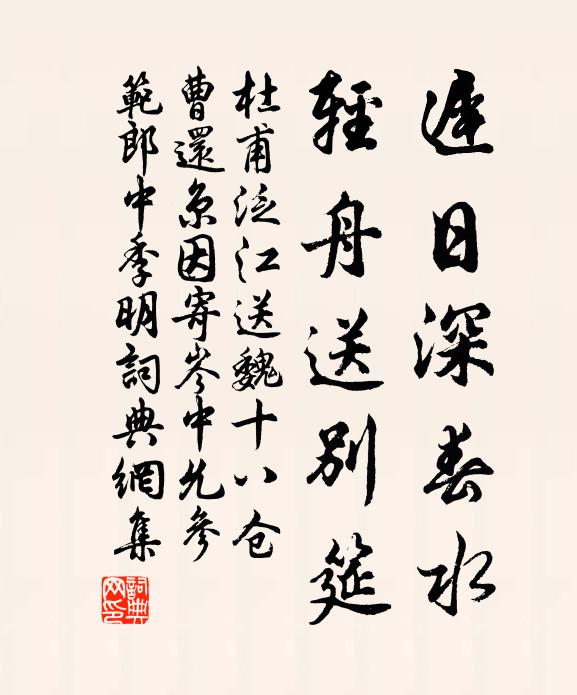 遲日深春水
輕舟送別筵
杜甫泛江送魏十八仓
曹還京因寄岑中允參
範郎中季明詞典網集
詞典
网印